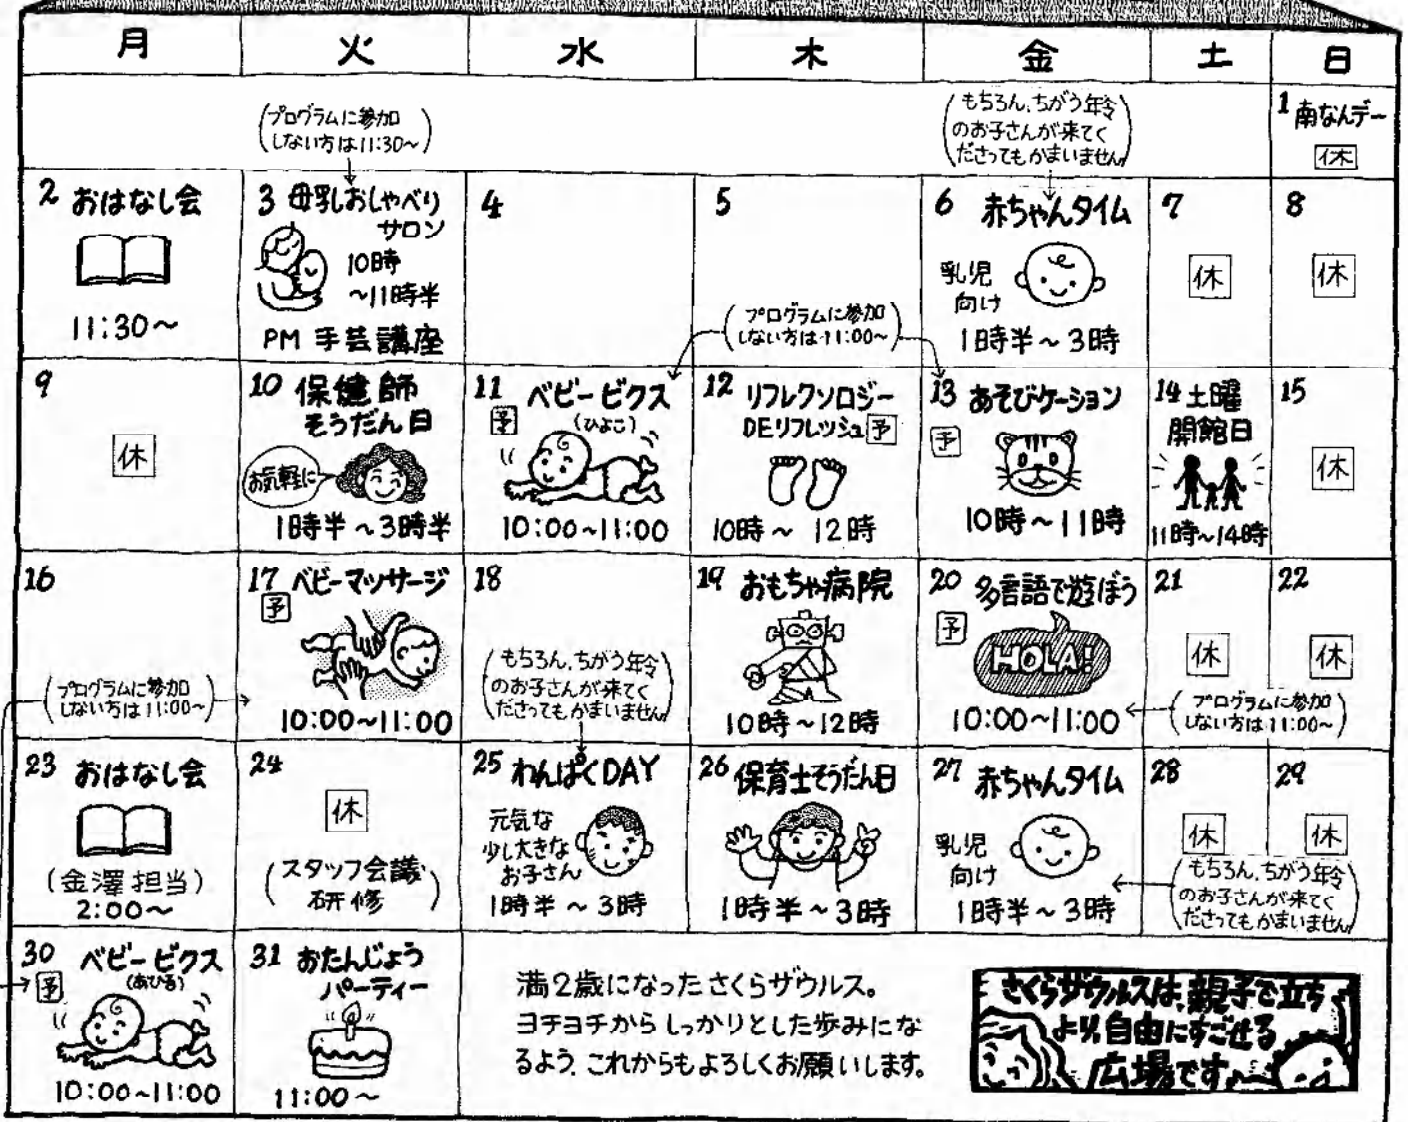 月 火 水 木 金 土 日
(プログラムに参加
しない方は11:30~)
(もちろん、ちがう年令
のお子さんが来てく
ださってもかまいません)
1 南なんデー
休
2 おはなし会
11:30~
3 母乳おしゃべり
サロン
10時
~11時半
PM 手芸講座
4
5
(プログラムに参加
しない方は11:00~)
6 赤ちゃんタイム
乳児
向け
1時半~3時
7
休
8
休
9
休
10 保健師
そうだん日
お気軽に
1時半~3時半
11 ベビービクス
予
(ひよこ)
10:00~11:00
12 リフレクソロジー
DEリフレッシュ 予
10時~12時
13 あそびケーション
予
10時~11時
14 土曜
開館日
11時~14時
15
休
16
(プログラムに参加
しない方は11:00~)
17 ベビーマッサージ
予
10:00~11:00
18
(もちろん、ちがう年令
のお子さんが来てく
ださってもかまいません)
19 おもちゃ病院
10時~12時
20 多言語で遊ぼう
予
HOLA!
10:00~11:00
21
休
22
休
(プログラムに参加
しない方は11:00~)
23 おはなし会
(金澤担当)
2:00~
24
休
(スタッフ会議・
研修)
25 わんぱくDAY
元気な
少し大きな
お子さん
1時半~3時
26 保育士そうだん日
1時半~3時
27 赤ちゃんタイム
乳児
向け
1時半~3時
28
休
29
休
(もちろん、ちがう年令
のお子さんが来てく
ださってもかまいません)
30 ベビービクス
予
(あひる)
10:00~11:00
31 おたんじょう
パーティー
11:00~
満2歳になったさくらザウルス。
ヨチヨチからしっかりとした歩みにな
るよう、これからもよろしくお願いします。
さくらザウルスは、親子で立ち
より、自由にすごせる
広場です。